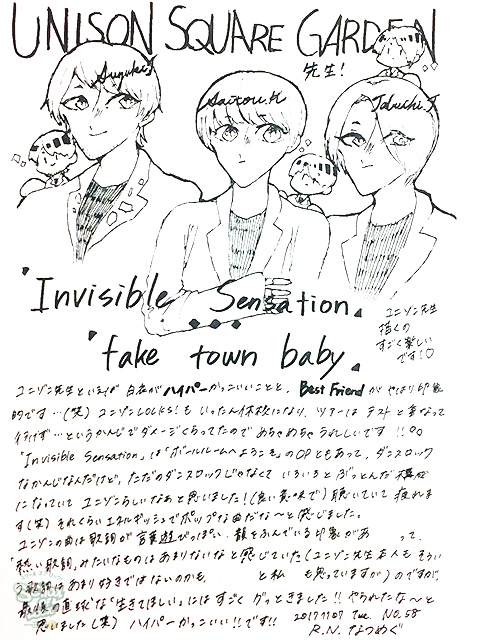 UNISON SQUARE GARDEN
先生!
Suzuki.T
Saitou.K
Tabuchi.T
「Invisible Sensation」
「fake town baby」
ユニゾン先生
描くの
すごく楽しい
です!♡
ユニゾン先生といえば 自在がハイパーかっこいいことと、Best Friendが やはり印象
的です…(笑) ユニゾンLOCKS!も いったん休校になり、ツアーは テストと重なって
行けず…というかんじでダメージくらってたので めちゃめちゃうれしいです!!
"Invisible Sensation"は「ボールルームへようこそ」のOPともあって、ダンスロック
なかんじなんだけど、ただのダンスロックじゃなくて いろいろと ぶっとんだ構成
になっていて ユニゾンらしいなぁと思いました!(良い意味で) 聴いていて 疲れま
す(笑) それくらいエネルギッシュでポップな曲だな〜と 感じました。
ユニゾンの曲は歌詞が 言葉遊びっぽい、韻をふんでいる印象があ って、
「熱い歌詞」みたいなものは あまりないなと 感じていた(ユニゾン先生 本人も そうい
う歌詞はあまり好きではないのかも、 と私 も思っていますが)のですが、
最後の直球な"生きてほしい"には すごく グッときました!! やられたな〜と
思いました(笑) ハイパーかっこいい!!です!! 2017.11.07 Tue. NO.58
R.N. なつめぐ